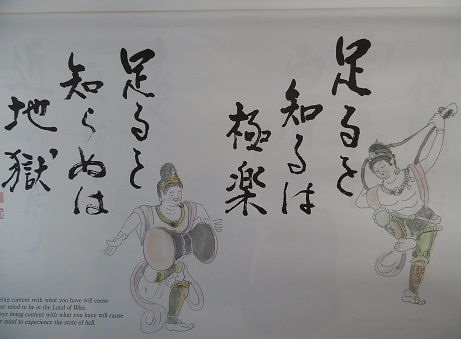 足ると
知るは
極楽
足ると
知らぬは
地獄
being content with what you have will cause
your mind to be in the Land of Bliss.
ever being content with what you have will cause
ur mind to experience the state of hell.